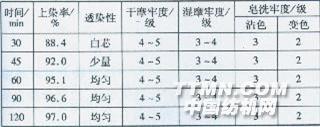 时间/min 上染率/% 透染性 干摩牢度/级 湿摩牢度/级 皂洗牢度/级
沾色 变色
30 88.4 白芯 4~5 3~4 3 2
45 92.0 少量 4~5 3~4 3 2
60 95.1 均匀 4~5 3~4 3 2
90 96.6 均匀 4~5 3~4 3 2
120 97.0 均匀 4~5 3~4 3 2
TTMN.COM
中国纺机网